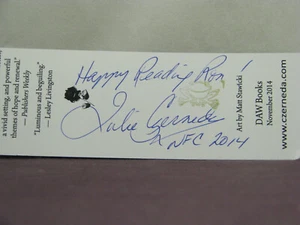 a vivid setting, and powerful
themes of hope and renewal."
— Publishers Weekly
"Luminous and beguiling."
— Lesley Livingston
Happy Reading Ron!
Julie Czerneda
NFC 2014
Art by Matt Stawicki
DAW Books
November 2014
www.czerneda.com